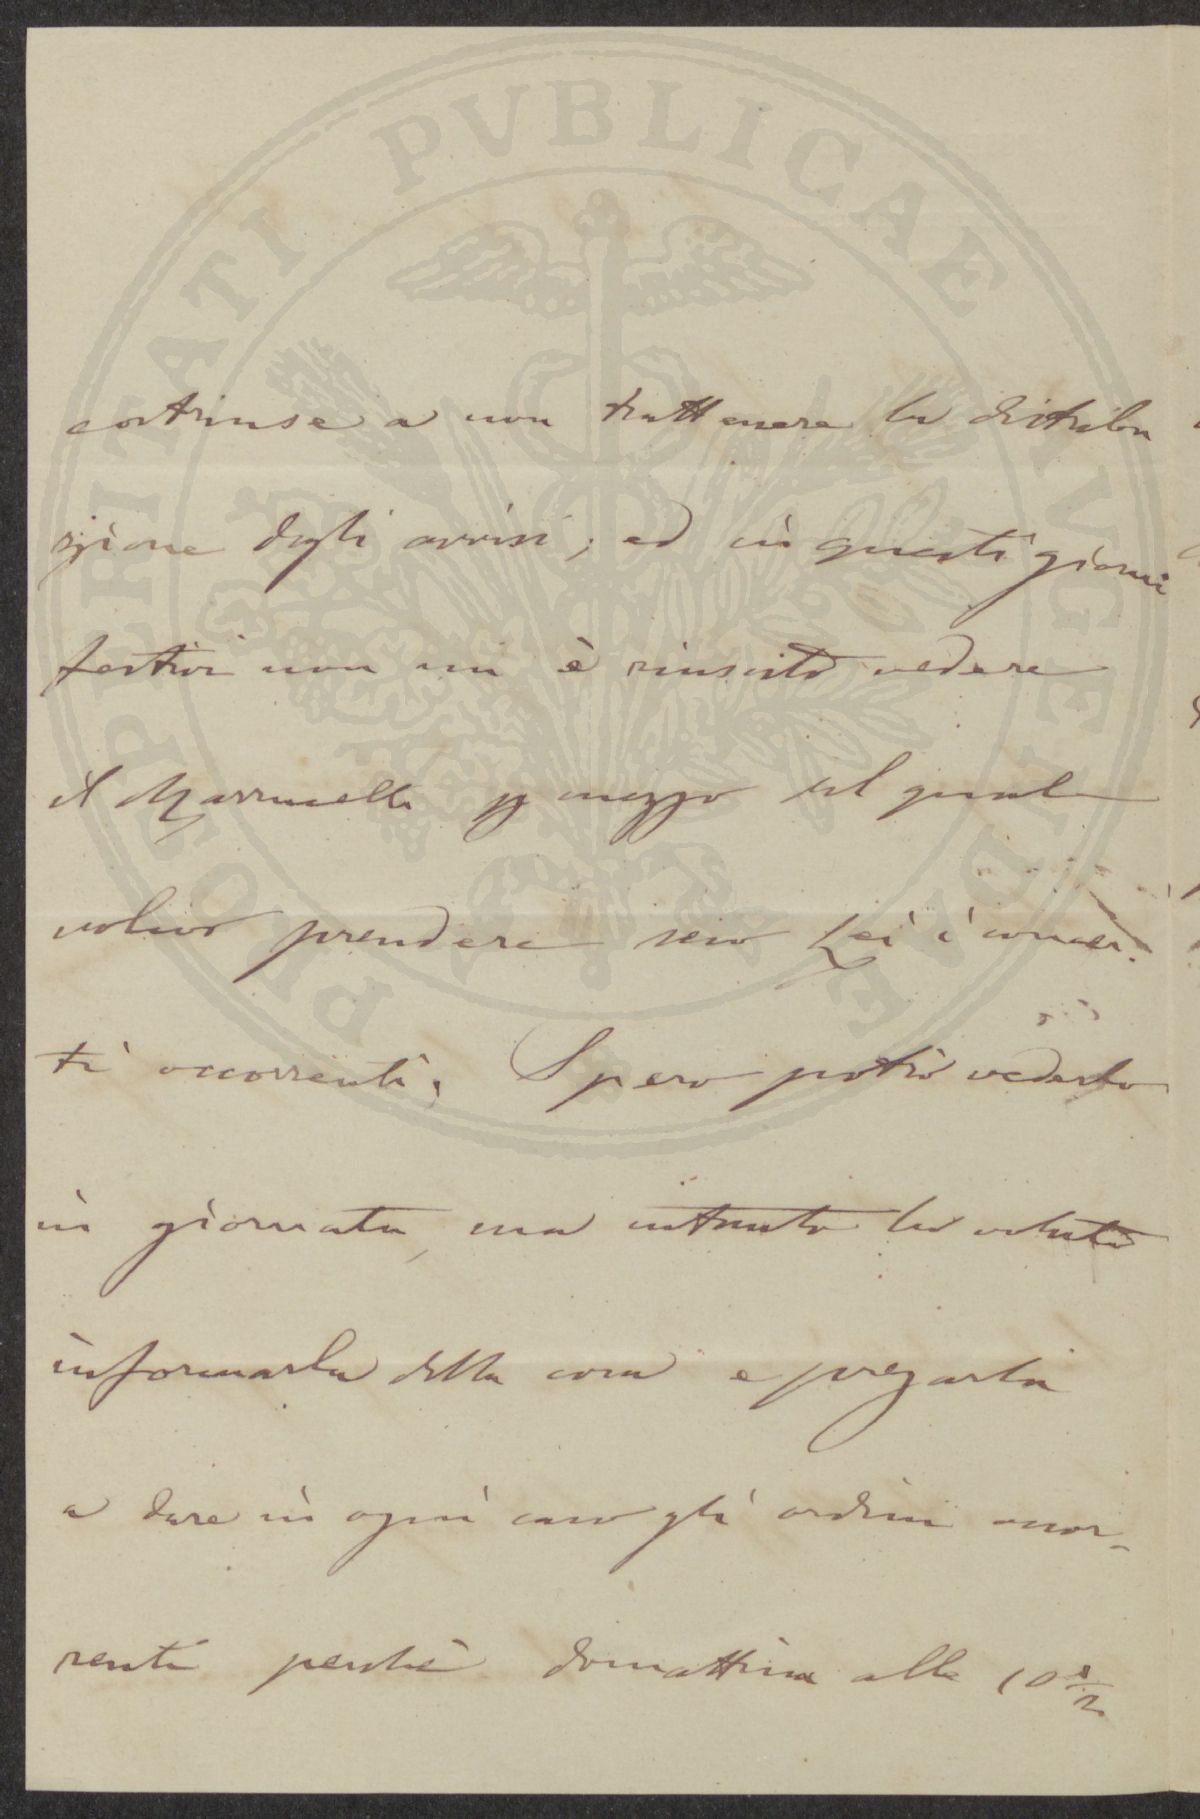 PROSPERITATI PUBLICAE AUGENDAE
costrinse a non trattenere la distribu
zione degli avvisi; ed in questi giorni
festivi non mi è riuscito vedere
il Marrucelli pr mezzo del quale
volevo prendere seco Lei i concer-
ti occorrenti. Spero potrò vederlo
in giornata, ma intanto ho voluto
informarla della cosa e pregarla
a dare in ogni caso gli ordini occor-
renti perchè domattina alle 10 1/2